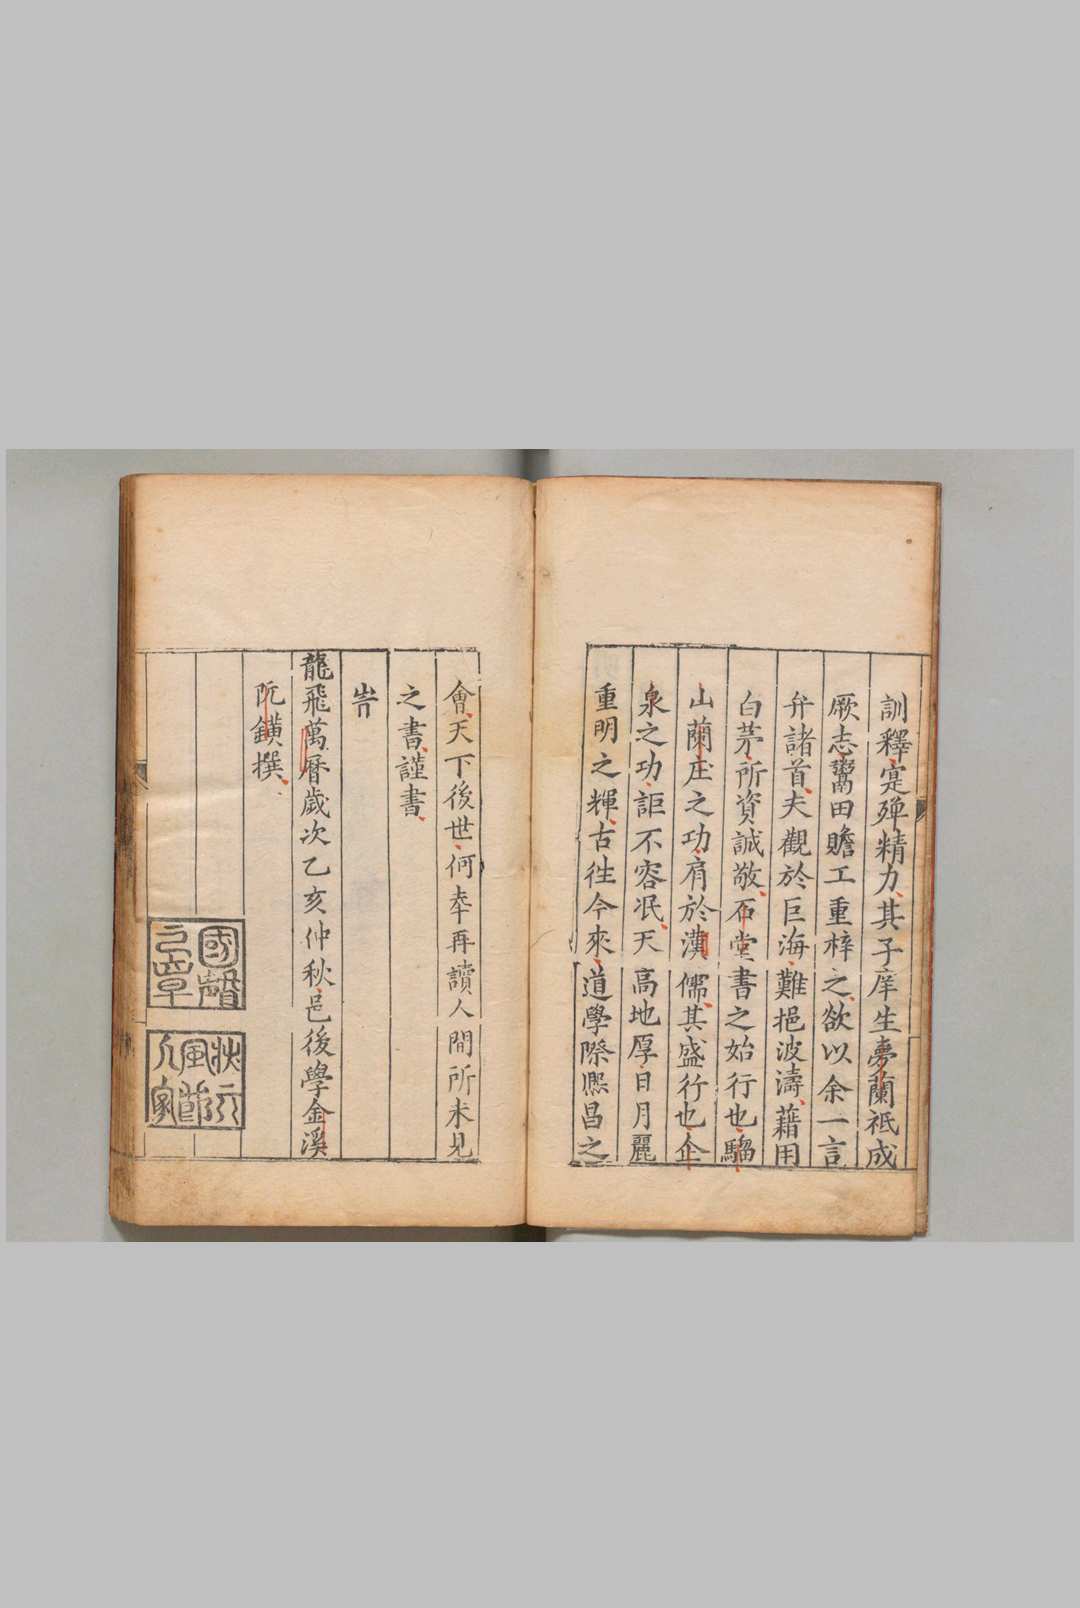 訓釋寔殫精力其子庠生夢蘭祗成
厥志鬻田贍工重梓之欲以余一言
弁諸首夫觀於巨海難挹波濤藉用
白茅所資誠敬石堂書之始行也騧
山蘭庄之功肩於漢儒其盛行也企
泉之功詎不容泯天高地厚日月麗
重明之輝古徃今來道學際熈昌之
會天下後世何幸再讀人間所未見
之書謹書
旹
龍飛萬曆歲次乙亥仲秋邑後學金溪
阮鐄撰
國聲之章
風節人家